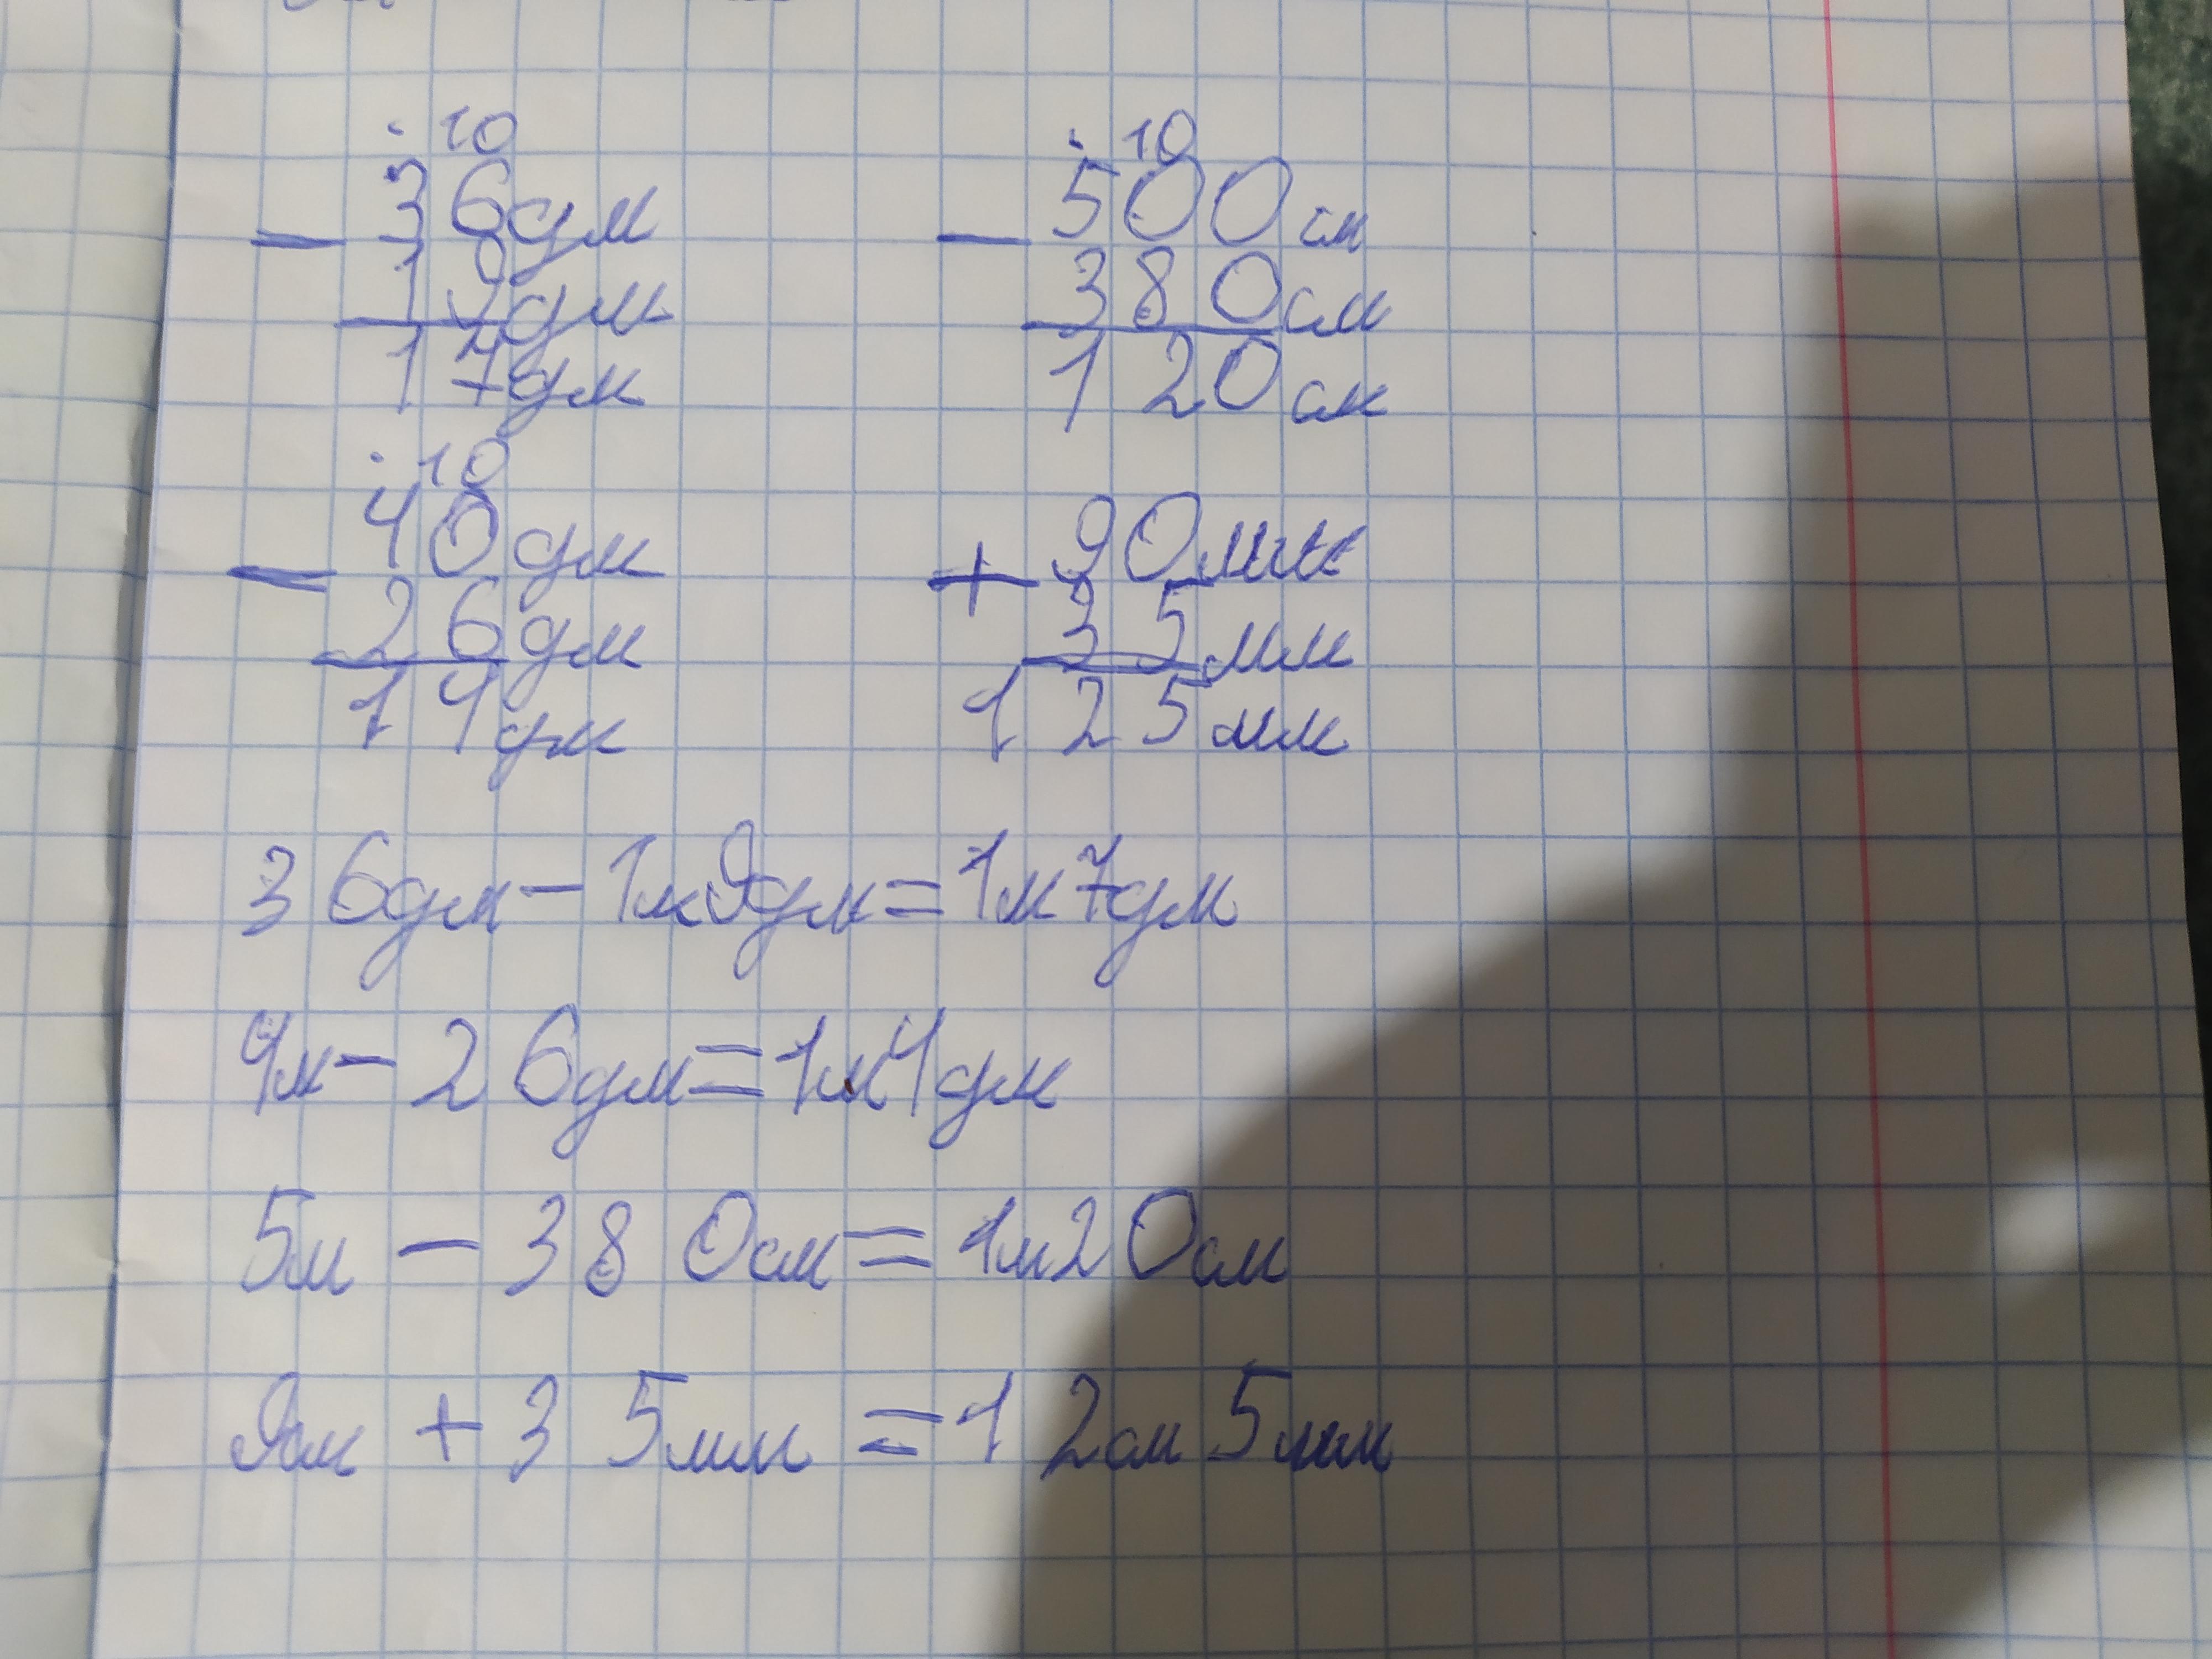 · 10
- 36дм
19дм
17дм
· 10
- 500см
380см
120см
· 10
- 40дм
26дм
14дм
+ 90мм
35мм
125мм
36дм - 1м9дм = 1м7дм
4м - 26дм = 1м4дм
5м - 380см = 1м20см
9см + 35мм = 12см5мм